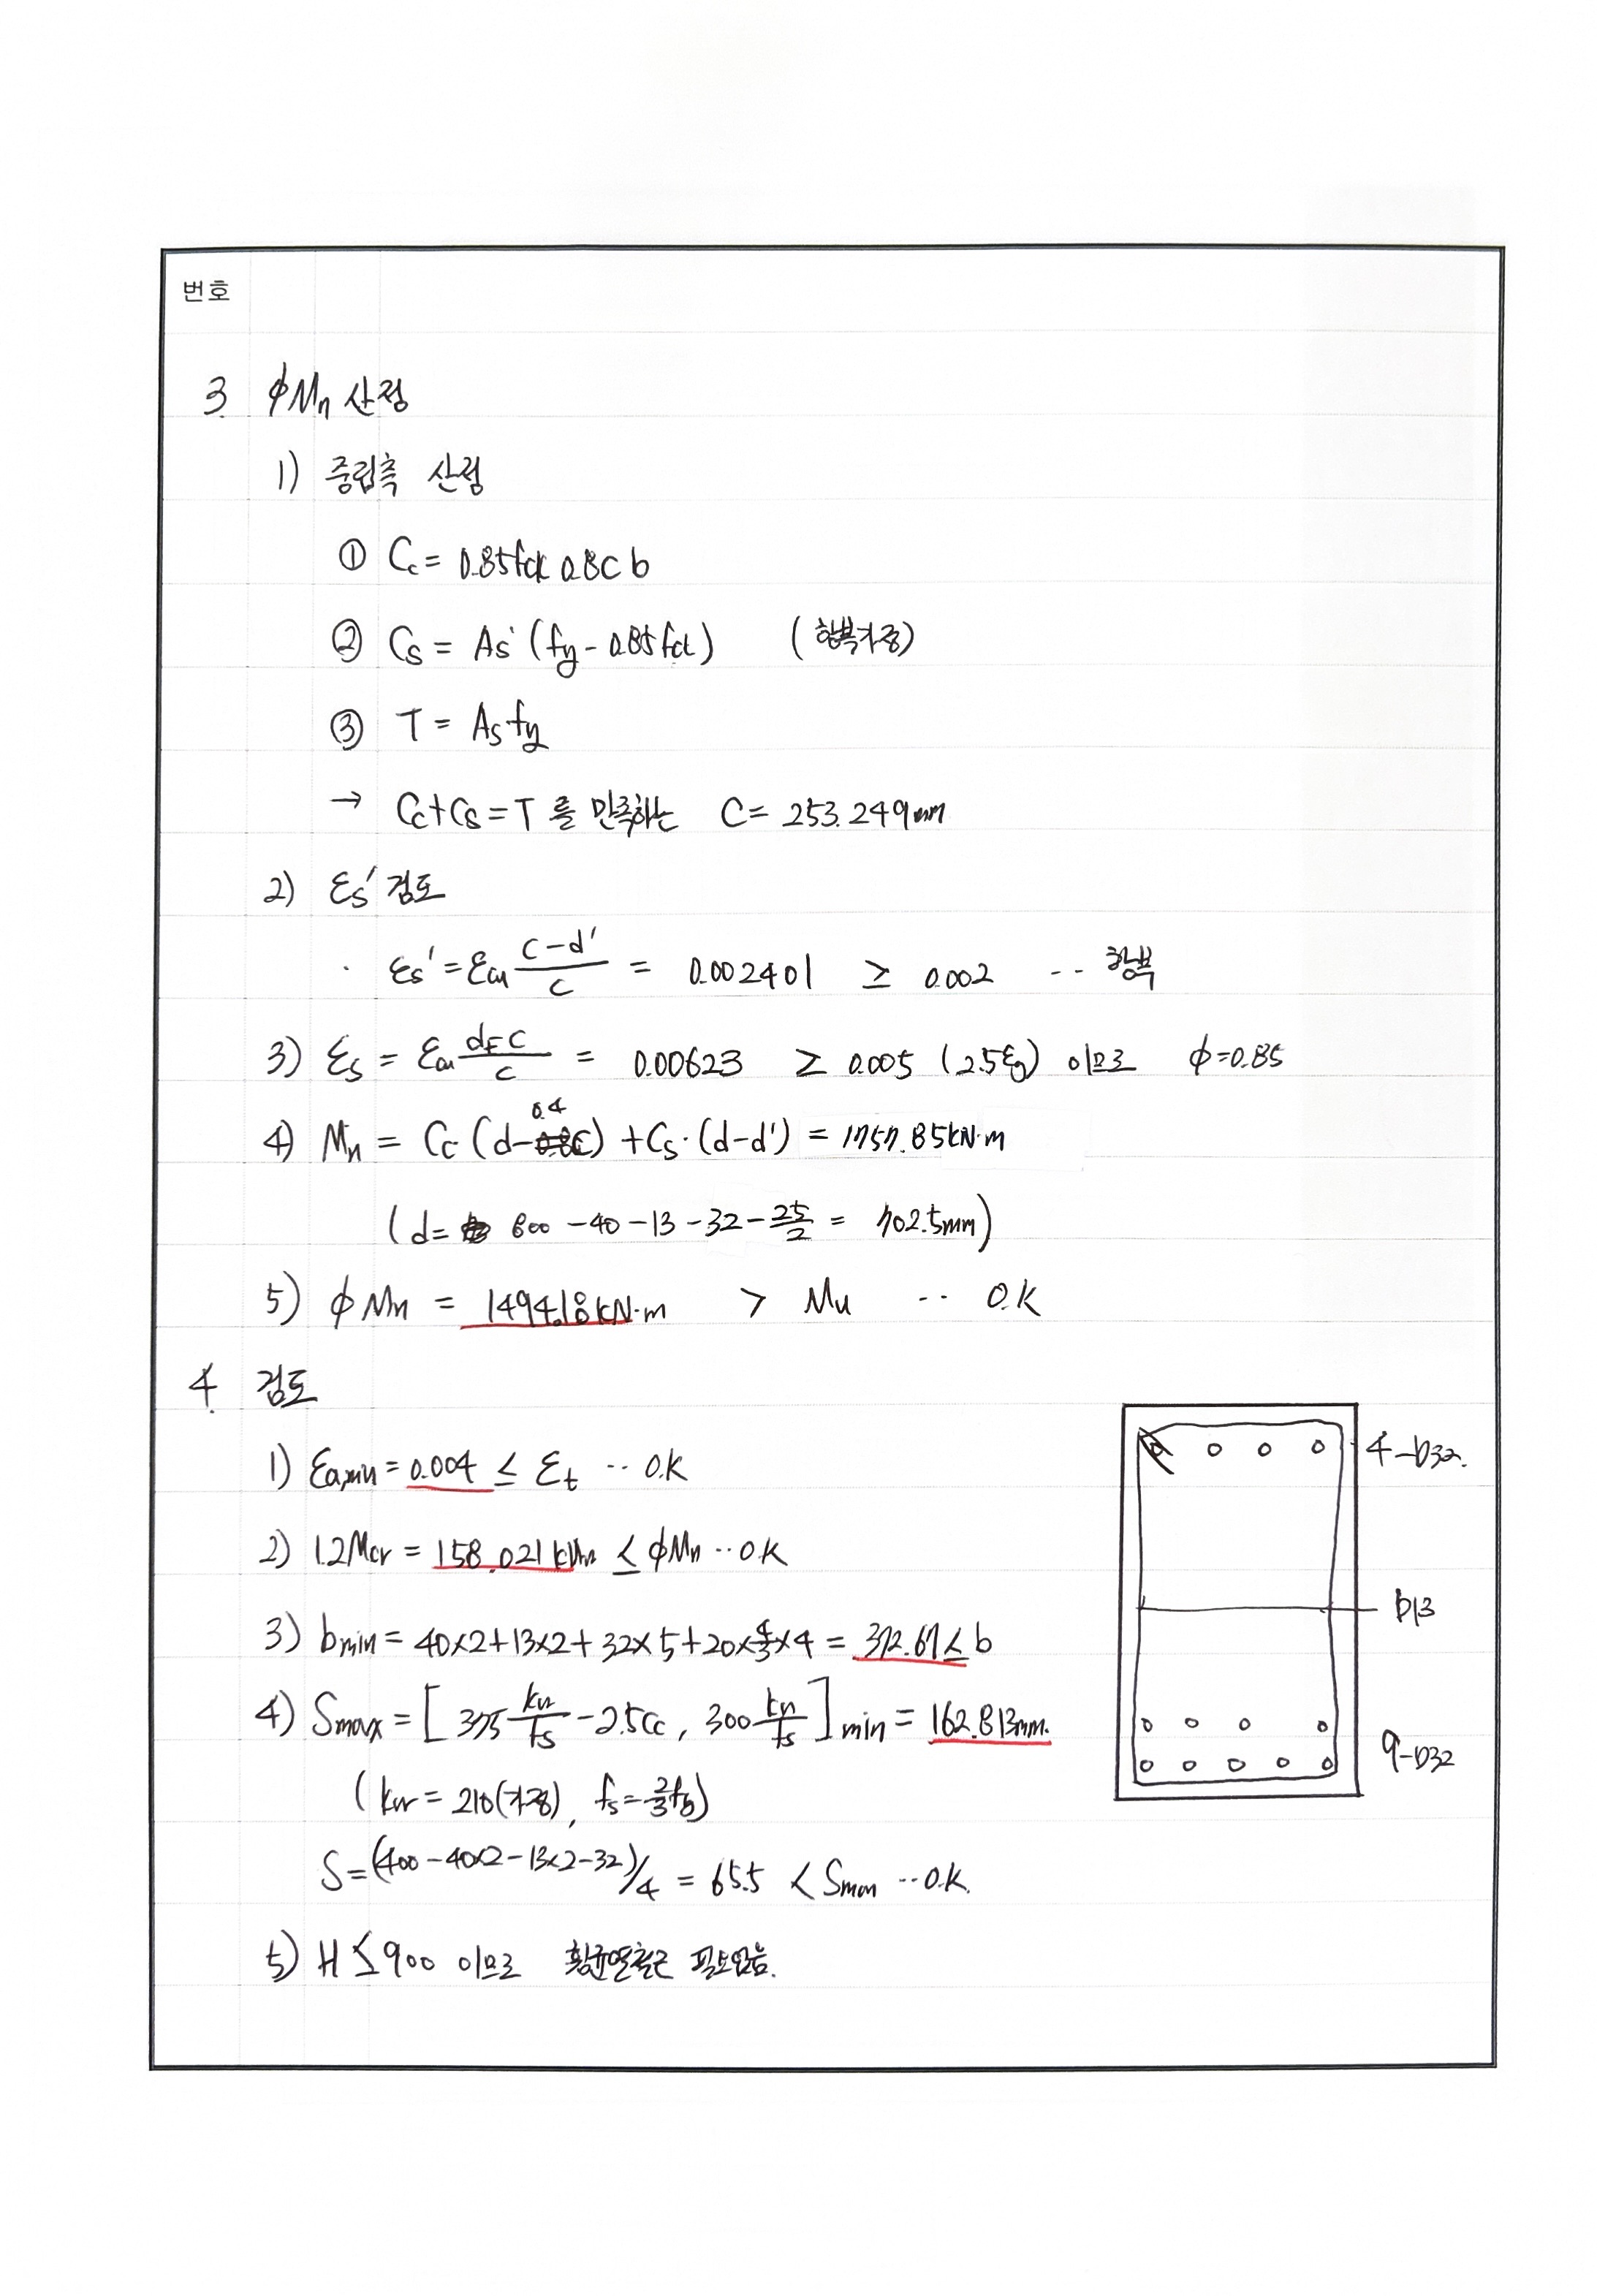 번호
3 ϕMn 산정
1) 중립축 산정
① Cc = 0.85fck 0.8c b
② Cs = As' (fy - 0.85fck) (항복가정)
③ T = As fy
→ Cc+Cs = T 를 만족하는 C = 253.249mm
2) εs' 검토
· εs' = εcu (c-d')/c = 0.002401 ≥ 0.002 ‥ 항복
3) εs = εcu (dt-c)/c = 0.00623 ≥ 0.005 (2.5εy) 이므로 ϕ=0.85
4) Mn = Cc (d-0.4c) + Cs·(d-d') = 1757.85kN·m
(d= 800 -40-13-32-25/2 = 702.5mm)
5) ϕMn = 1494.18kN·m > Mu ‥ O.K
4. 검토
1) εa,min = 0.004 ≤ εt ‥ O.K
2) 1.2Mcr = 158.021kNm ≤ ϕMn ‥ O.K
3) bmin = 40×2+13×2+32×5+20×4/3×4 = 372.67 ≤ b
4) Smax = [ 375 kcr/fs - 2.5Cc , 300 kcr/fs ] min = 162.813mm.
(kcr = 210(가정), fs = 2/3fy)
S = (400-40×2-13×2-32)/4 = 65.5 < Smax ‥ O.K.
5) H ≤ 900 이므로 횡균열철근 필요없음.
4-D32.
D13
9-D32